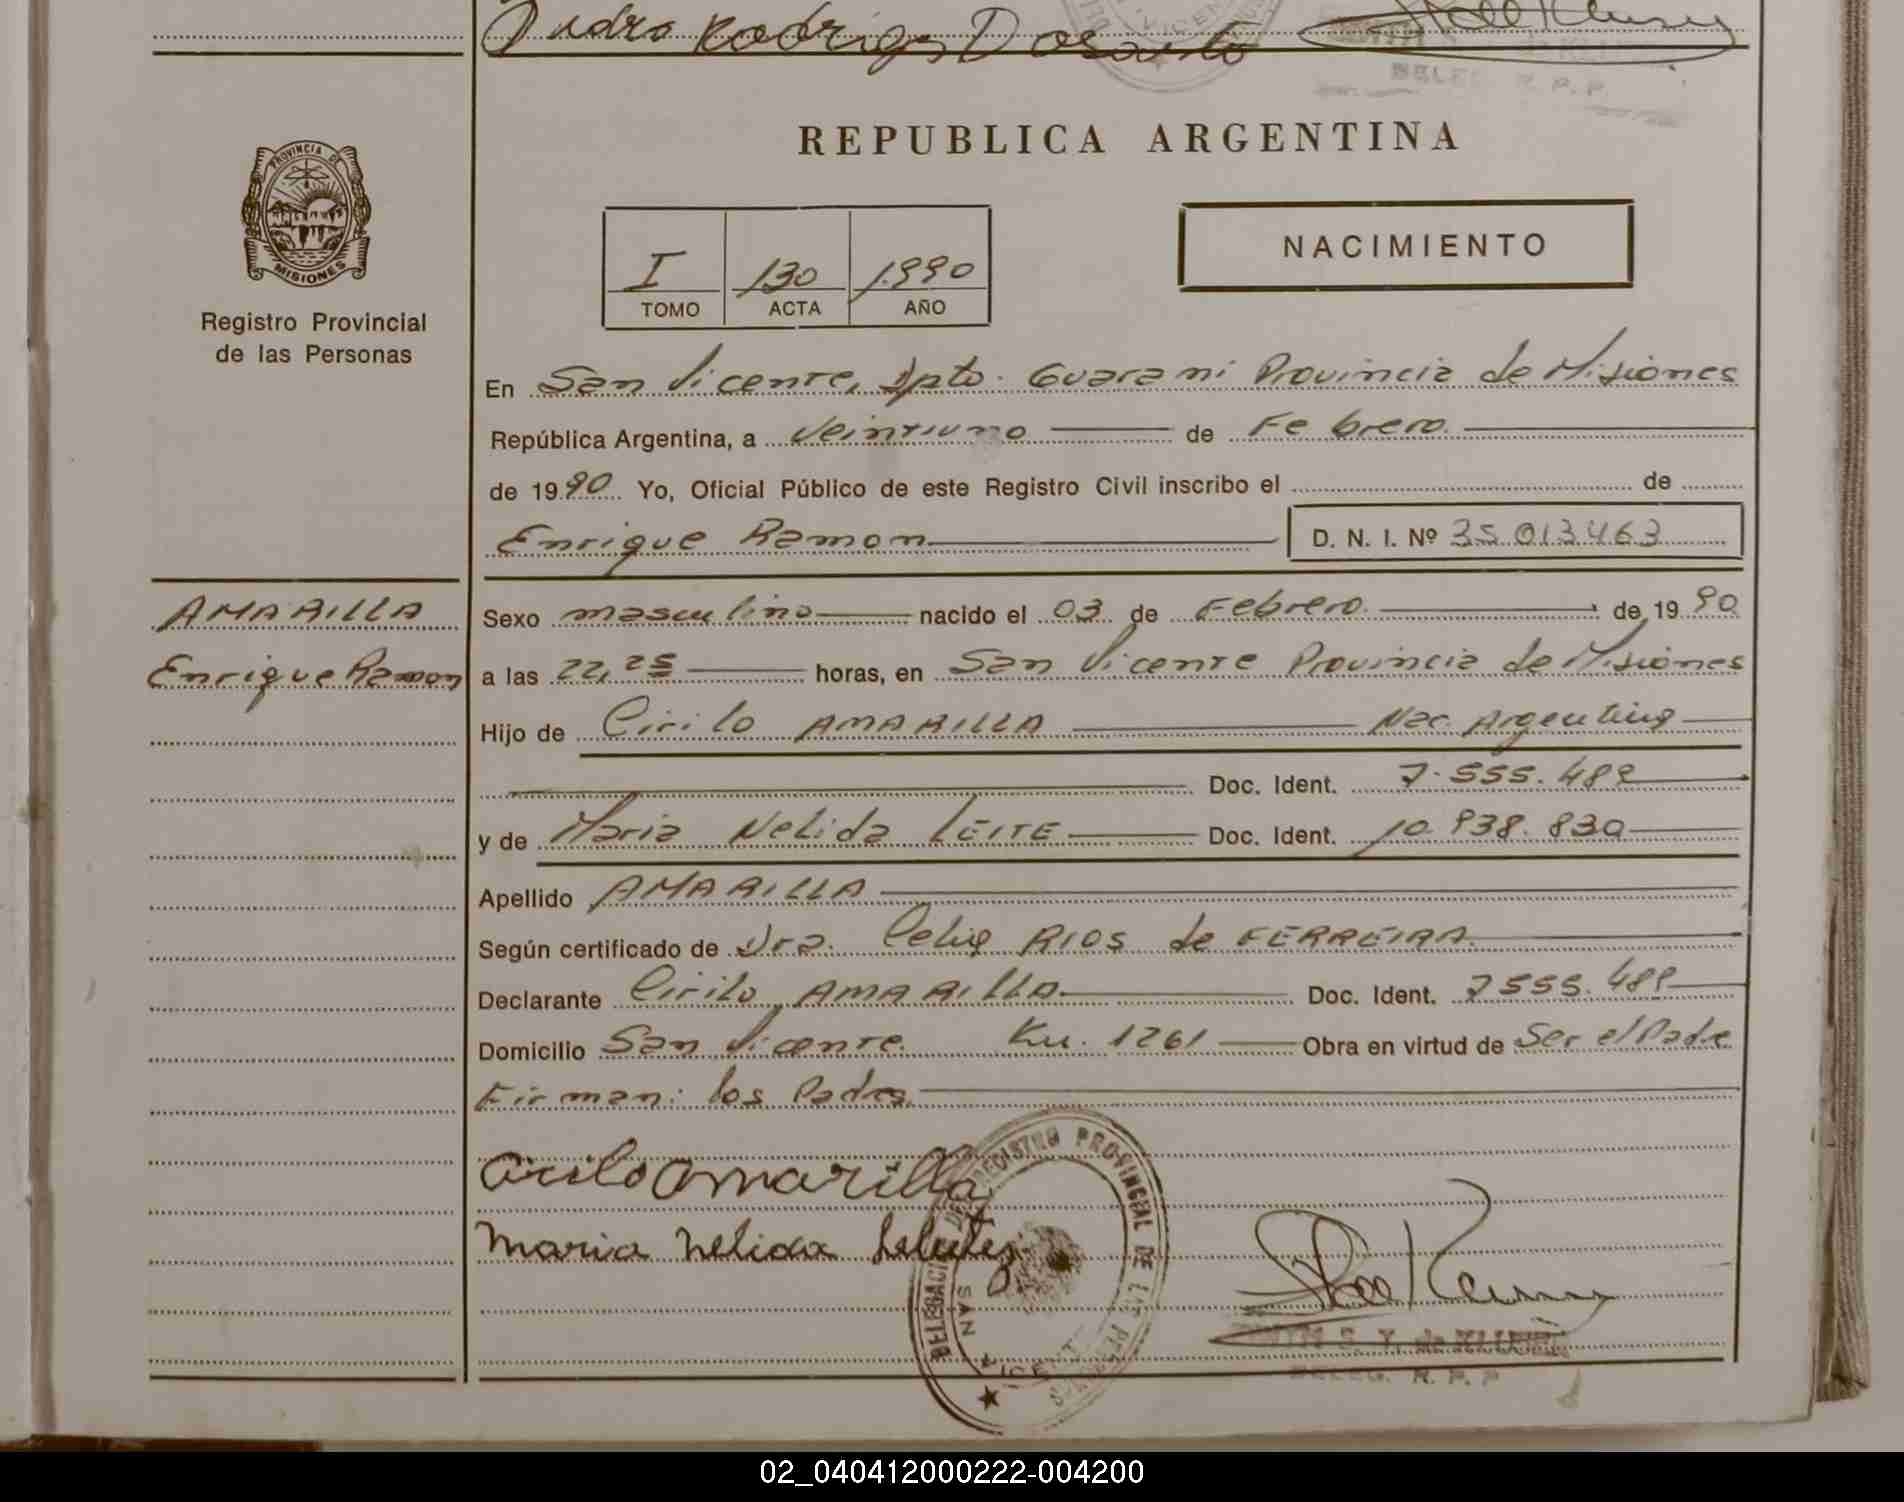 Pedro Rodrigz Dosanto
DELEG. R. P. P.
PROVINCIA DE
MISIONES
Registro Provincial
de las Personas
REPUBLICA ARGENTINA
I 130 1990
TOMO ACTA AÑO
NACIMIENTO
En San Vicente, Dpto. Guarani Provincia de Misiones
República Argentina, a veintiuno de Febrero
de 1990 Yo, Oficial Público de este Registro Civil inscribo el de
Enrique Ramon D. N. I. Nº 35 013463
AMARILLA
Enrique Ramon
Sexo masculino nacido el 03 de Febrero de 1990
a las 22,25 horas, en San Vicente Provincia de Misiones
Hijo de Cirilo AMARILLA Nac. Argentina
Doc. Ident. 7.555.489
y de Maria Nelida LEITE Doc. Ident. 10.938.830
Apellido AMARILLA
Según certificado de Dra. Celia RIOS de FERREIRA
Declarante Cirilo AMARILLA Doc. Ident. 7555.489
Domicilio San Vicente Km. 1261 Obra en virtud de Ser el Padre
Firman: los Padres
Cirilo Amarilla
Maria Nelida
DELEGACION DEL REGISTRO PROVINCIAL DE LAS PERSONAS
SAN VICENTE
DELEG. R. P. P
02_040412000222-004200